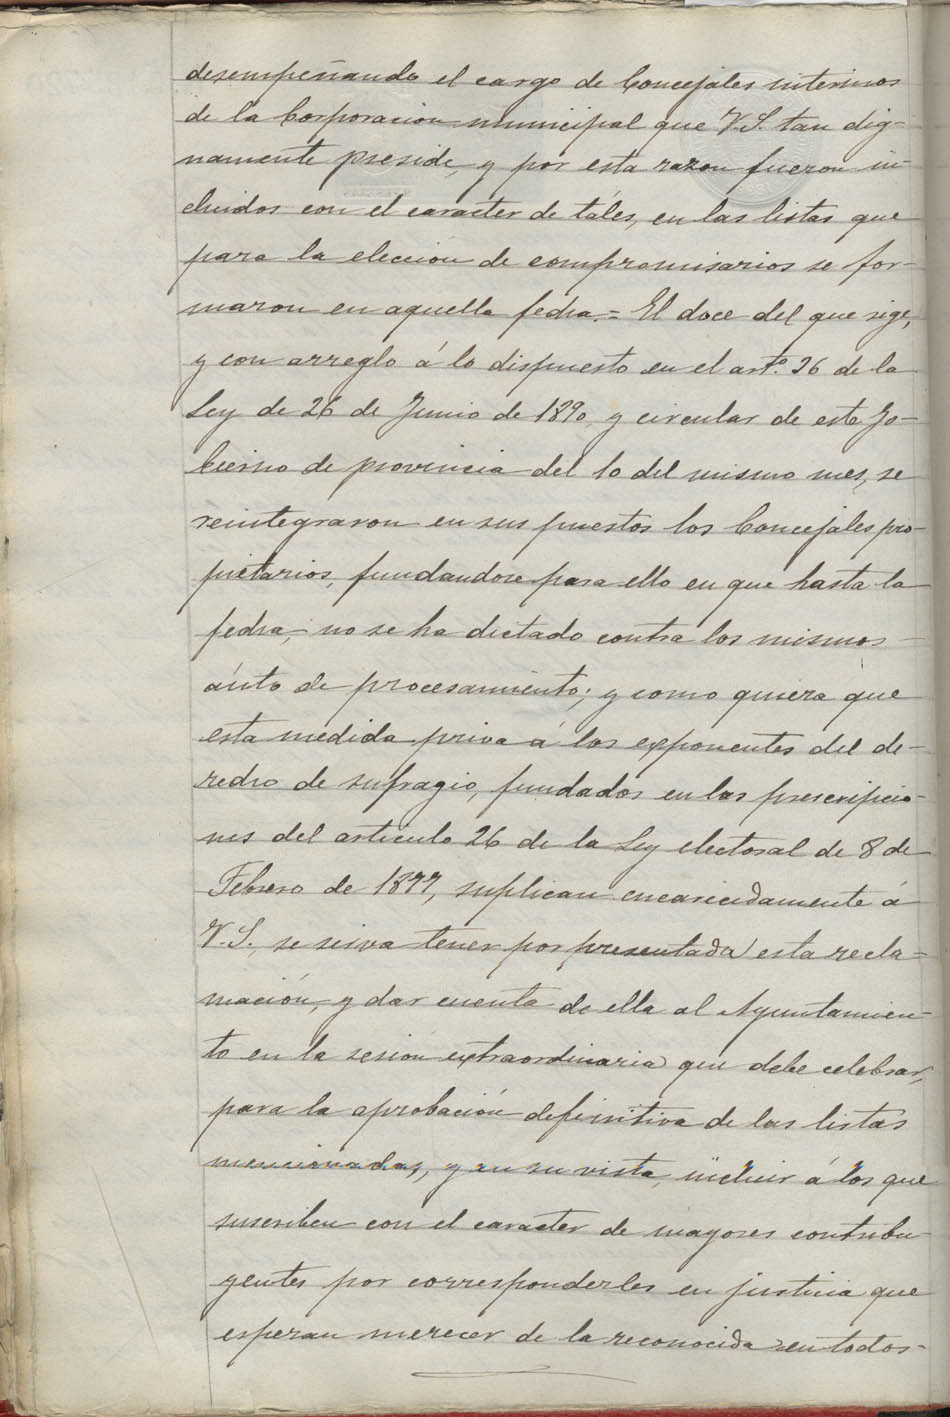 desempeñando el cargo de Concejales interinos
de la Corporacion municipal que V.S. tan dig-
namente preside, y por esta razon fueron in-
cluidos con el caracter de táles, en las listas que
para la eleccion de compromisarios se for-
maron en aquella fecha.= El doce del que rige,
y con arreglo á lo dispuesto en el art.º 26 de la
Ley de 26 de Junio de 1890, y circular de este Go-
bierno de provincia del 10 del mismo mes, se
reintegraron en sus puestos los Concejales pro-
pietarios, fundandose para ello en que hasta la
fecha, no se ha dictado contra los mismos
áuto de procesamiento; y como quiera que
esta medida priva á los exponentes del de-
recho de sufragio, fundados en las prescripcio-
nes del articulo 26 de la Ley electoral de 8 de
Febrero de 1877, suplican encarecidamente á
V.S., se sirva tener por presentada esta recla-
mación, y dar cuenta de ella al Ayuntamien-
to en la sesion extraordinaria que debe celebrar,
para la aprobación definitiva de las listas
mencionadas, y en su vista, incluir á los que
suscriben con el caracter de mayores contribu-
yentes por corresponderles en justicia que
esperan merecer de la reconocida en todos-